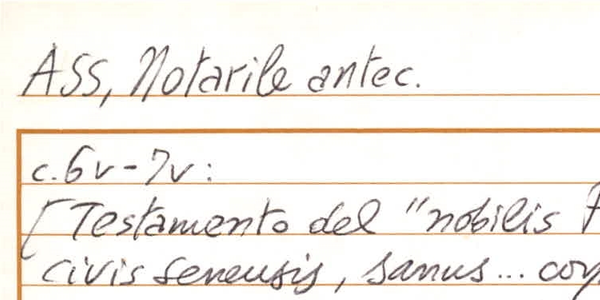 ASS, Notarile antec.
c. 6v-7v:
[Testamento del "nobilis
civis senensis, sanus...